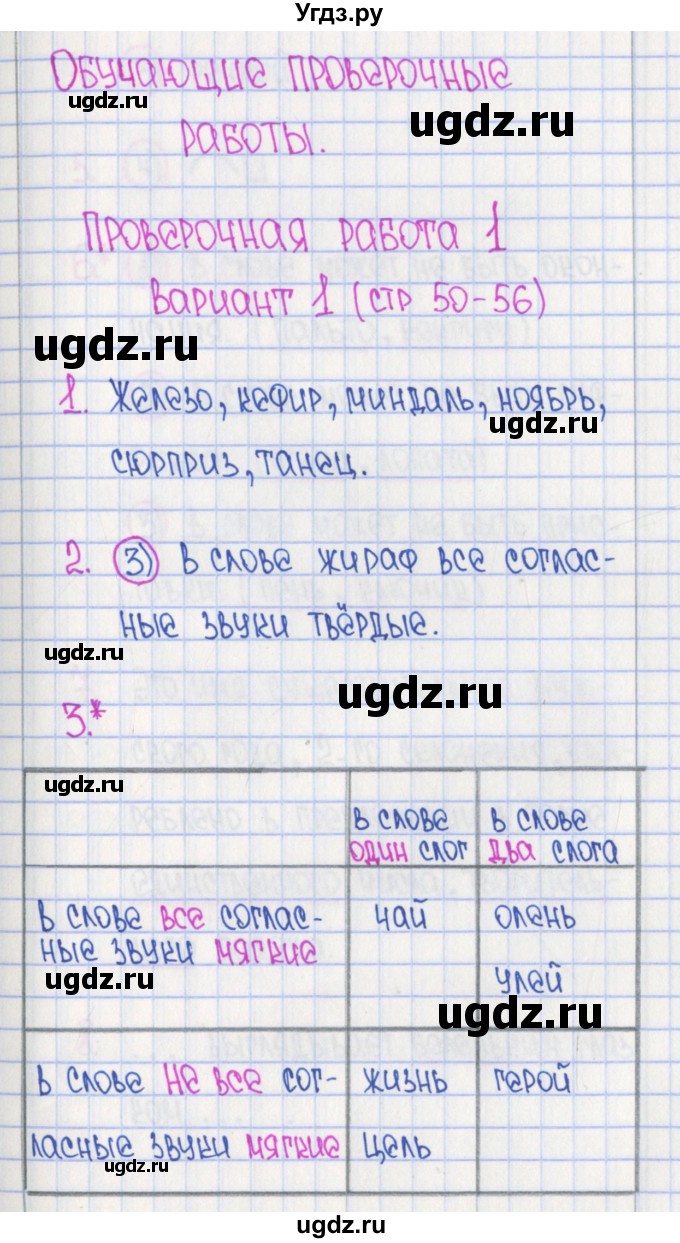 Угдз.ру
Обучающие проверочные
ugdz.ru
ugdz.ru
работы.
Проверочная работа 1
Вариант 1 (стр 50-56)
ugdz.ru
1. Железо, кефир, миндаль, ноябрь,
ugdz.ru
сюрприз, танец.
2. 3) В слове жираф все соглас-
ные звуки твёрдые.
ugdz.ru
ugdz.ru
3.*
ugdz.ru
В слове один слог
В слове два слога
В слове все соглас-
ные звуки мягкие
чай
олень
улей
ugdz.ru
ugdz.ru
В слове не все сог-
ласные звуки мягкие
жизнь
цель
герой
ugdz.ru
ugdz.ru